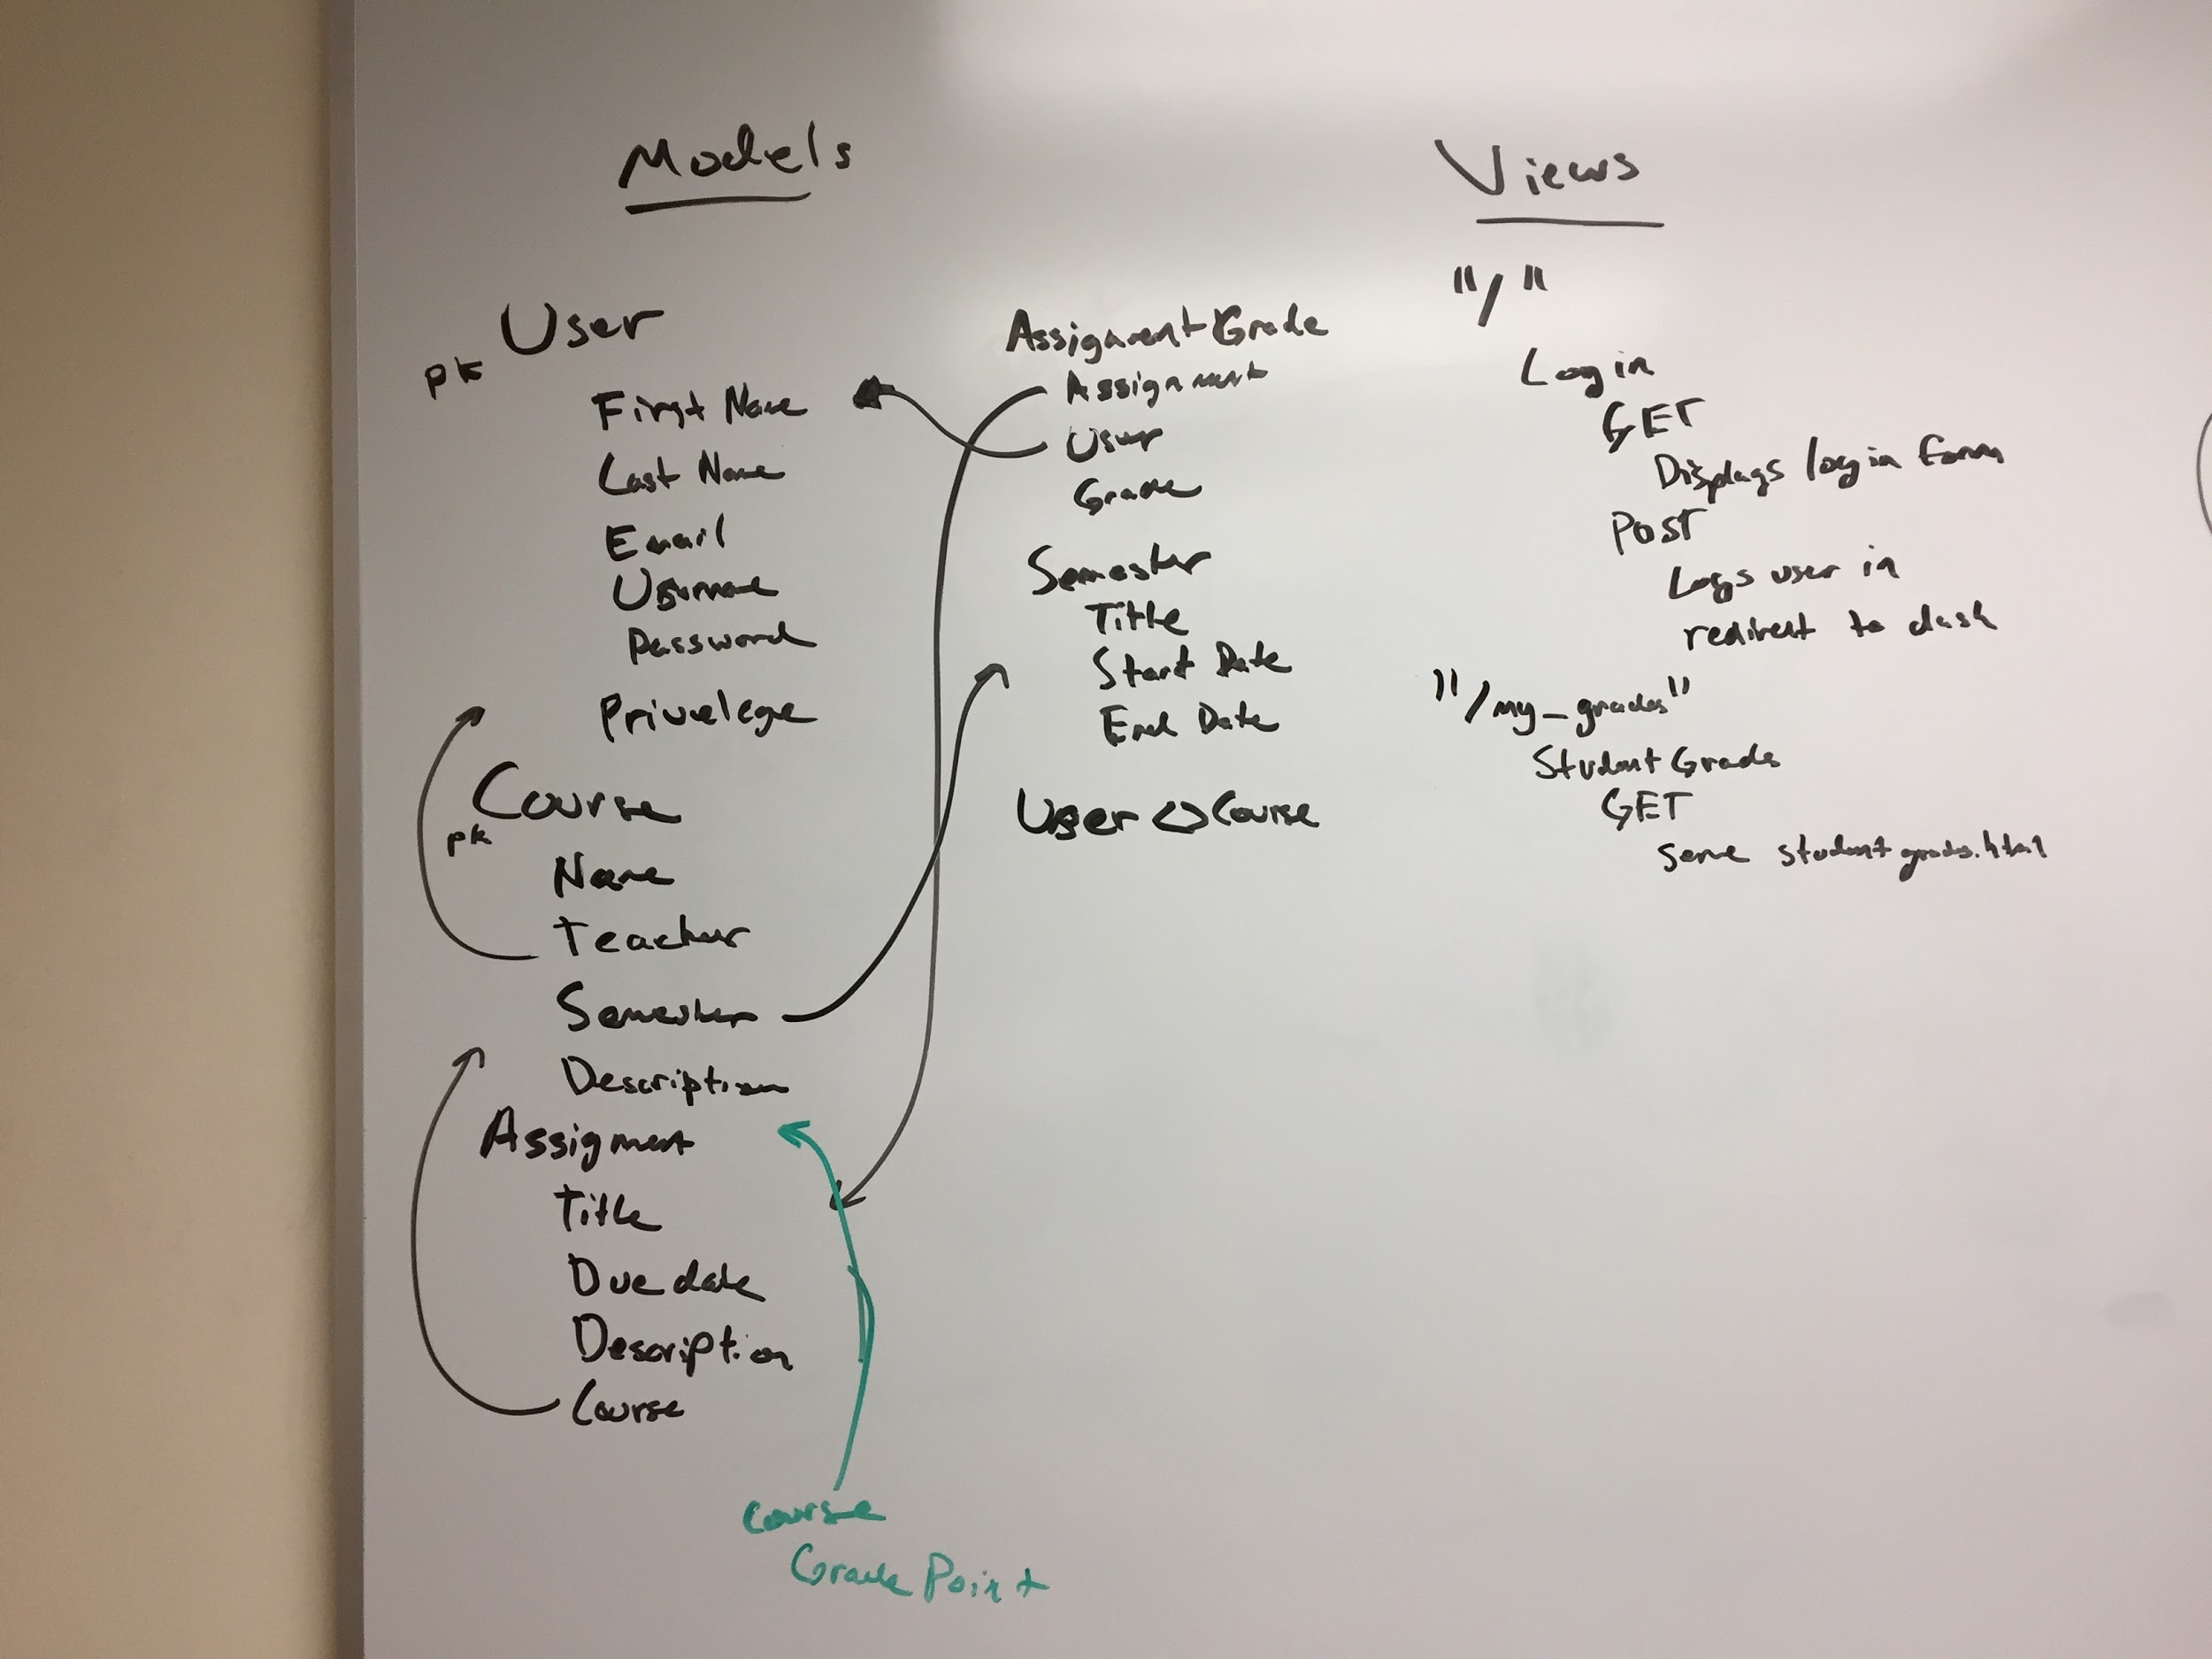 Models
User
pk
First Name
Last Name
Email
Username
Password
Privelege
Course
pk
Name
Teacher
Semester
Description
Assigment
Title
Due date
Description
Course
Course
Grade Point
Assignment Grade
Assignment
User
Grade
Semester
Title
Start Date
End Date
User <> Course
Views
"/"
Login
GET
Displays login form
POST
Logs user in
redirect to dash
"/my_grades"
Student Grades
GET
serve studentgrades.html